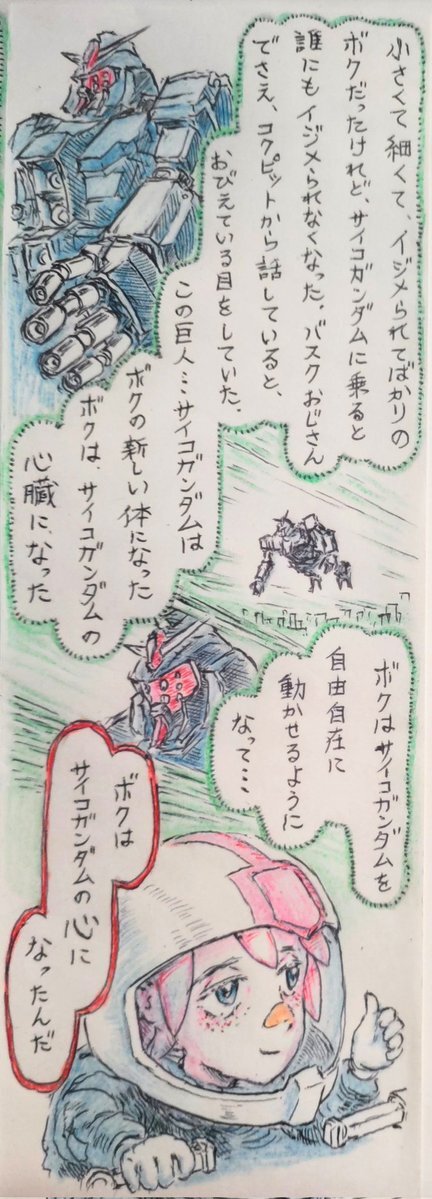 小さくて細くて、イジメられてばかりの
ボクだったけれど、サイコガンダムに乗ると
誰にもイジメられなくなった。バスクおじさん
でさえ、コクピットから話していると、
おびえている目をしていた。
この巨人…サイコガンダムは
ボクの新しい体になった
ボクは、サイコガンダムの
心臓に、なった
ボクはサイコガンダムを
自由自在に
動かせるように
なって…
ボクは
サイコガンダムの心に
なったんだ